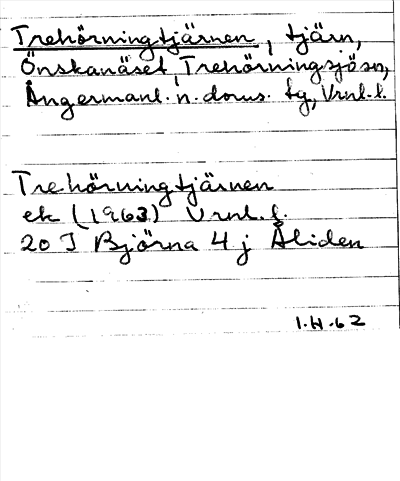 Trehörningtjärnen, tjärn,
Önskanäset, Trehörningsjösn,
Ångermanl. n. doms. tg, Vrnl. l.
Trehörningtjärnen
ek (1963) Vrnl. l.
20 I Björna 4 j Åliden
1.H.62